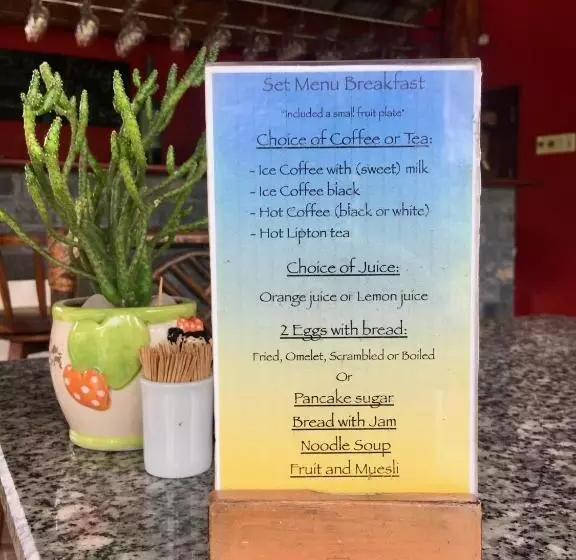 Set Menu Breakfast
"Included a small fruit plate"
Choice of Coffee or Tea:
- Ice Coffee with (sweet) milk
- Ice Coffee black
- Hot Coffee (black or white)
- Hot Lipton tea
Choice of Juice:
Orange juice or Lemon juice
2 Eggs with bread:
Fried, Omelet, Scrambled or Boiled
Or
Pancake sugar
Bread with Jam
Noodle Soup
Fruit and Muesli